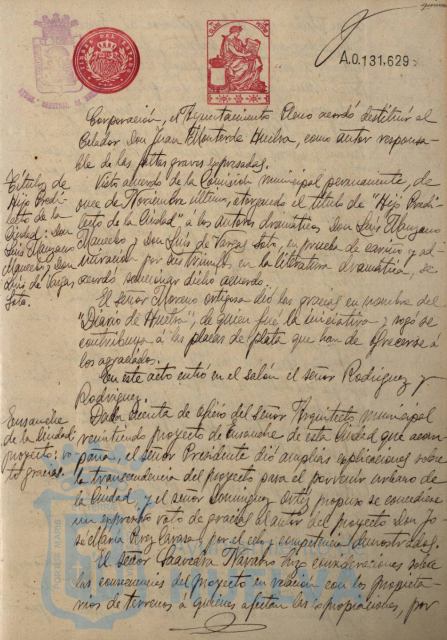 A.0.131.629
Corporación, el Ayuntamiento Pleno acordó destituir al
Celador Don Juan Monterde Huelva, como autor responsa-
ble de las faltas graves expresadas.
Títulos de
Hijo Predi-
lecto de la
Ciudad: Don
Luis Manzano
Mancebo y Don
Luis de Vargas
Soto.
Visto acuerdo de la Comisión municipal permanente, de
once de Noviembre último, otorgando el título de "Hijo Predi-
lecto de la Ciudad" a los autores dramáticos Don Luis Manzano
Mancebo y Don Luis de Vargas Soto, en prueba de cariño y ad-
miración por sus triunfos en la literatura dramática, se
acordó sancionar dicho acuerdo.
El Señor Moreno Ortega dió las gracias en nombre del
"Diario de Huelva", de quien fué la iniciativa y rogó se
contribuya a las placas de plata que han de ofrecerse a
los agraciados.
En este acto entró en el salón el señor Rodríguez y
Rodríguez.
Ensanche
de la Ciudad:
proyecto: vo-
to gracias.
Dada cuenta de oficio del Señor Arquitecto municipal
remitiendo proyecto de Ensanche de esta Ciudad que acom-
paña, el señor Presidente dió amplias explicaciones sobre
la transcendencia del proyecto para el porvenir urbano de
la Ciudad, y el señor Domínguez Ortiz propuso se concediese
un expresivo voto de gracias al autor del proyecto Don Jo-
sé María Pérez Carasa, por el celo y competencia demostrados.
El Señor Saavedra Navarro hizo consideraciones sobre
las conveniencias del proyecto en relación con los propieta-
rios de terrenos a quienes afectan las expropiaciones, por